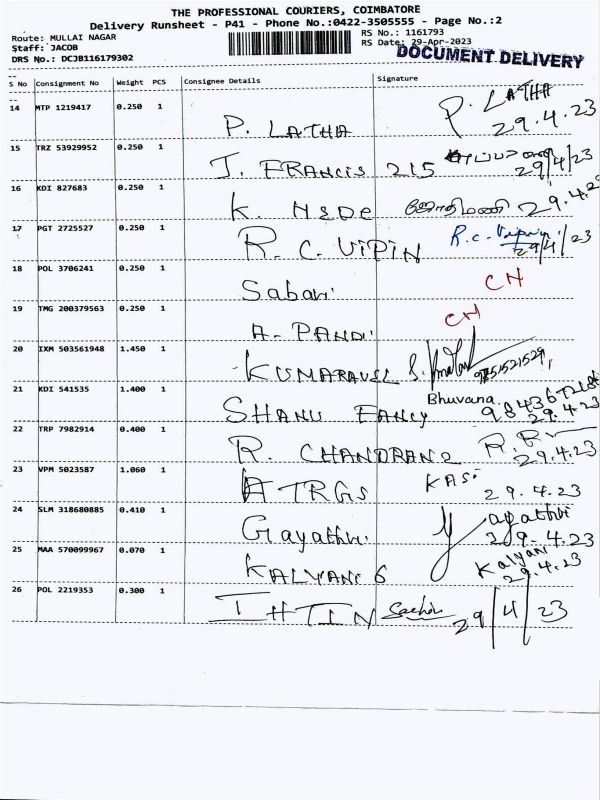 THE PROFESSIONAL COURIERS, COIMBATORE
Delivery Runsheet - P41 - Phone No.:0422-3505555 - Page No.:2
Route: MULLAI NAGAR
RS No.: 1161793
Staff: JACOB
RS Date: 29-Apr-2023
DRS No.: DCJB116179302
DOCUMENT DELIVERY
S No Consignment No Weight PCS Consignee Details Signature
14 MTP 1219417 0.250 1
P. LATHA P. LATHA
29.4.23
15 TRZ 53929952 0.250 1
J. FRANCIS 215 29/4/23
16 KDI 827683 0.250 1
K. ஜோதிமணி 29.4.23
17 PGT 2725527 0.250 1
R.C. VIPIN R.C. Vipin
29/4/23
18 POL 3706241 0.250 1
Sabari CN
19 TMG 200379563 0.250 1
A. PANDI CN
20 IXM 503561948 1.450 1
KUMARAVEL S.
21 KDI 541535 1.400 1
Bhuvana
SHANU FANCY
29.4.23
22 TRP 7982914 0.400 1
R. CHANDRAN
29.4.23
23 VPM 5023587 1.060 1
ATRGS KAS.
29.4.23
24 SLM 318680885 0.410 1
Gayathri Gayathri
29.4.23
25 MAA 570099967 0.070 1
KALYANI G Kalyani
29.4.23
26 POL 2219353 0.300 1
29/4/23